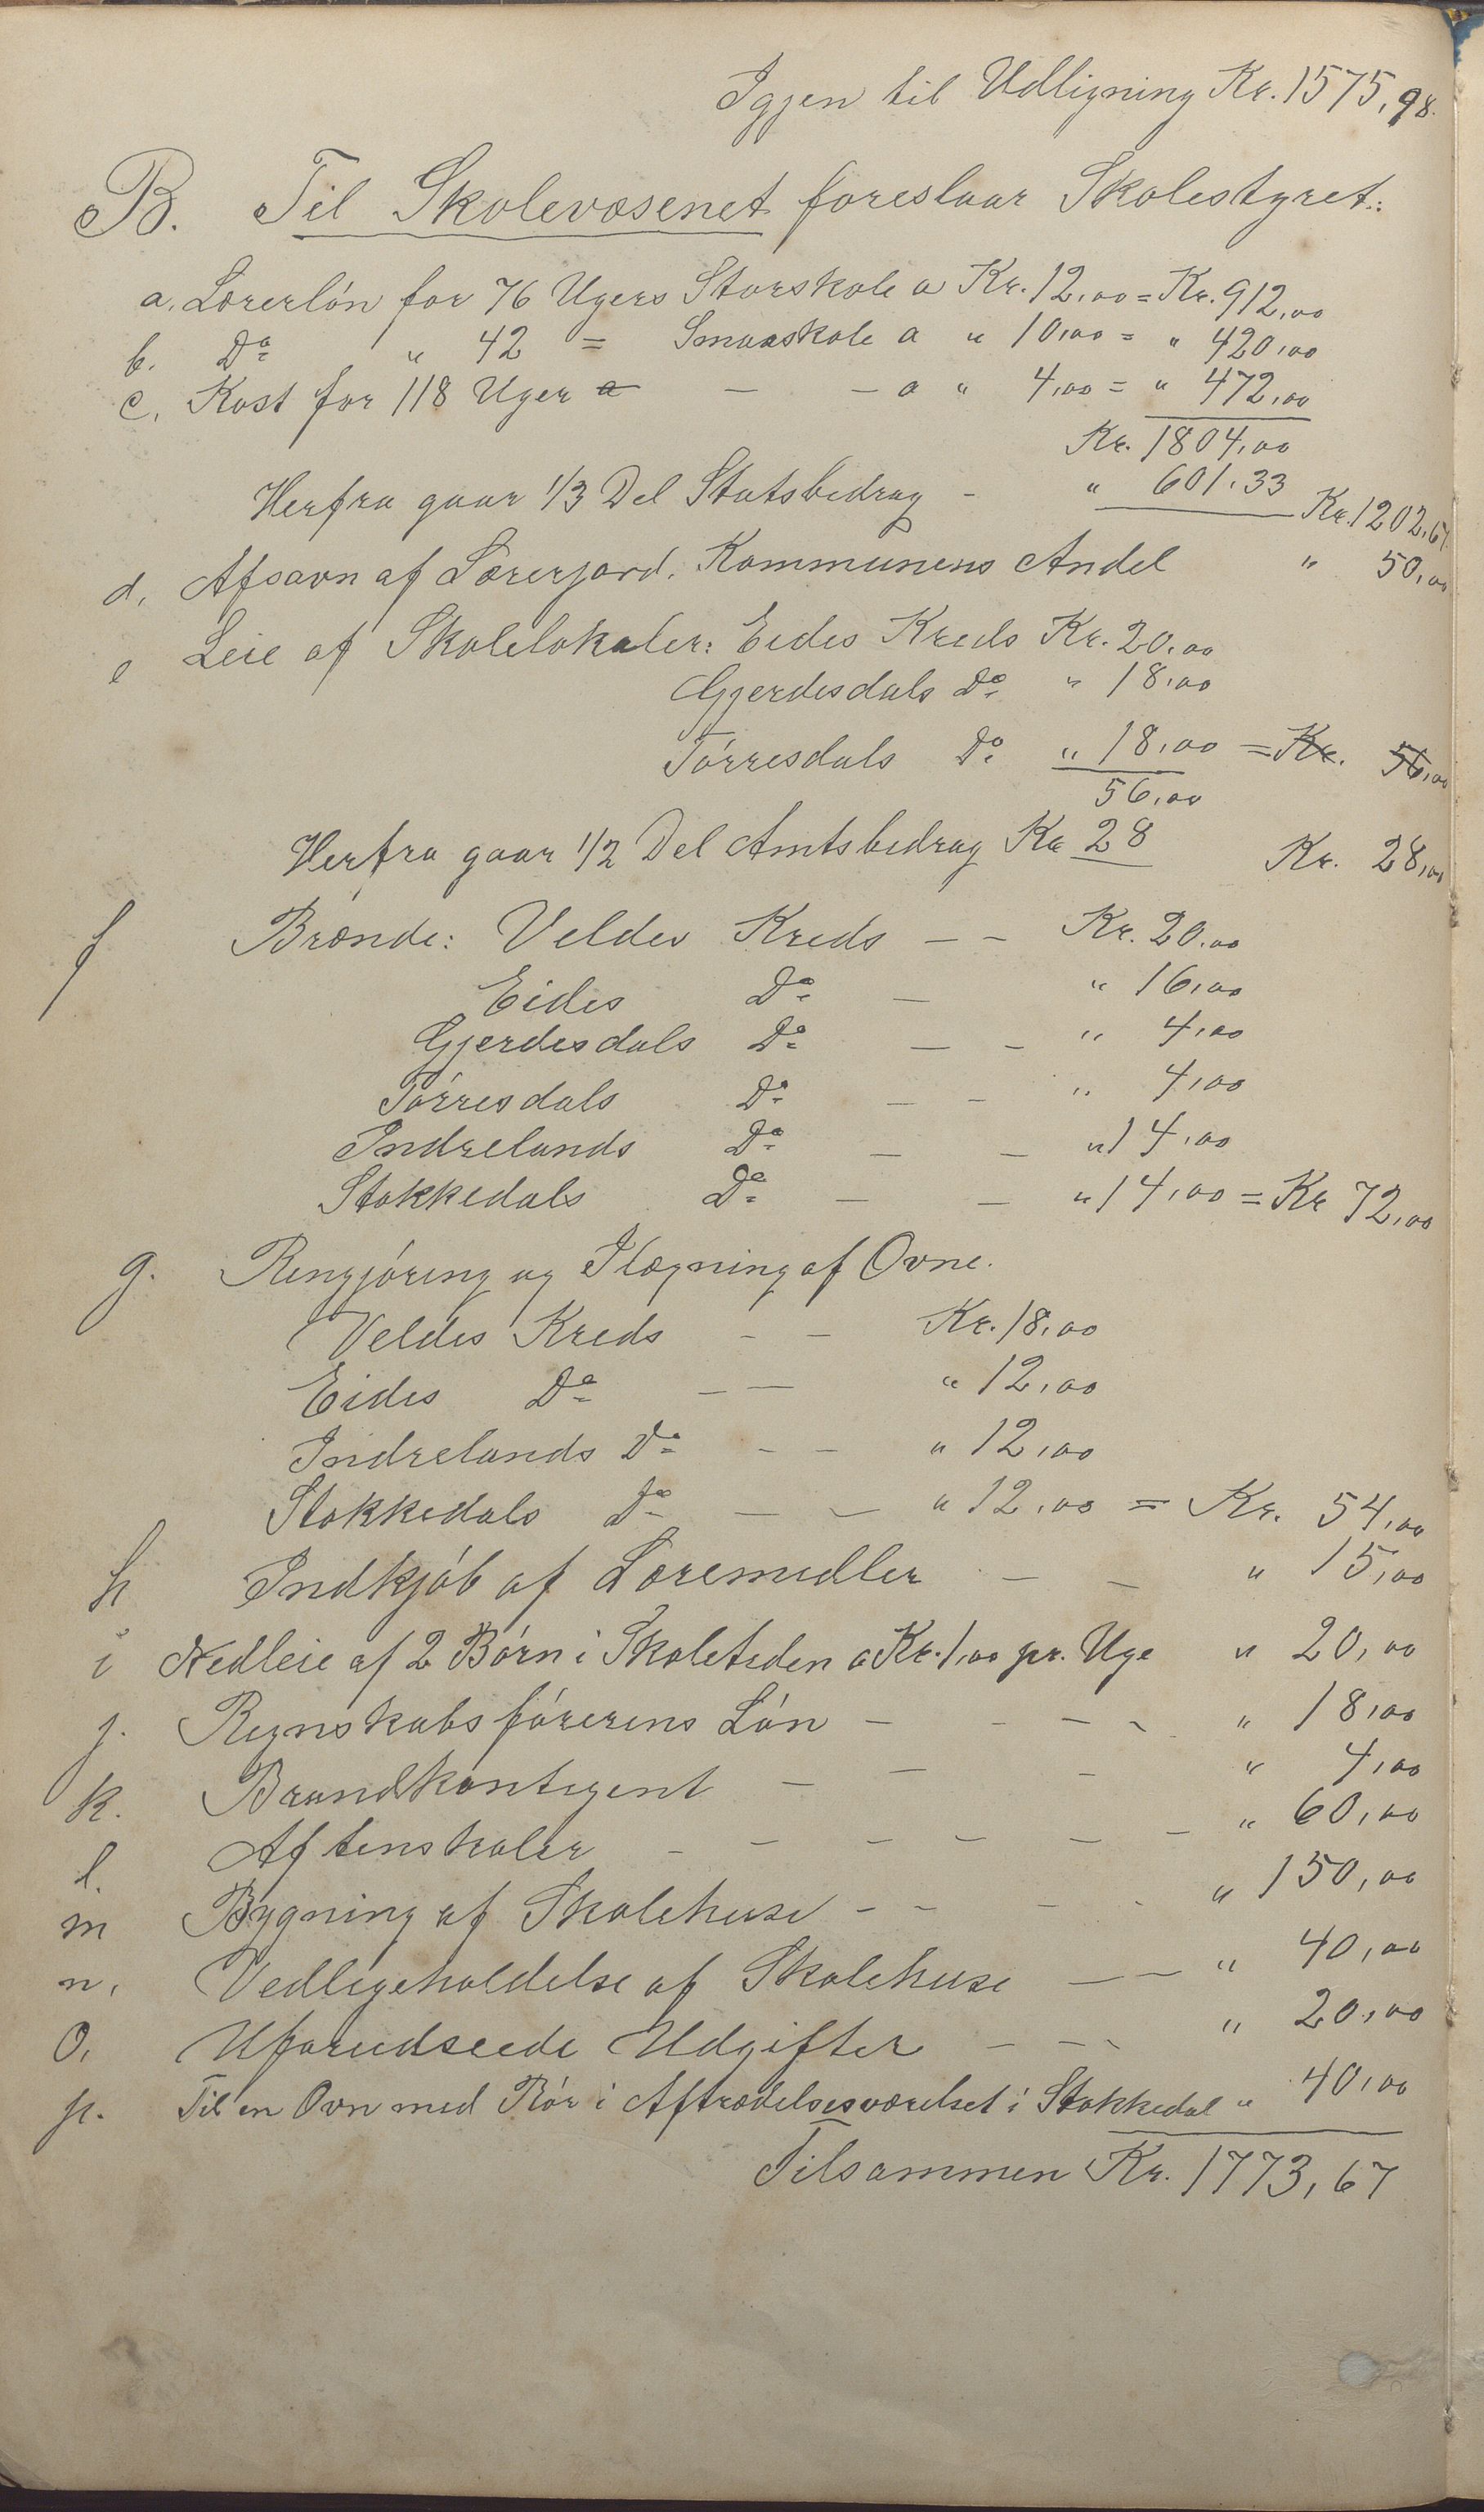 Igjen til Udligning Kr. 1575,98.
B. Til Skolevæsenet foreslaar Skolestyret:
a. Lærerlön for 76 Ugers Storskole a Kr. 12,00 = Kr. 912,00
b. Do „ 42 = Smaaskole a „ 10,00 = „ 420,00
c. Kost for 118 Uger a — — a „ 4,00 = „ 472,00
Kr. 1804,00
Herfra gaar 1/3 Del Statsbidrag - „ 601,33 Kr. 1202,67
d. Afsavn af Lærerjord. Kommunens Andel „ 50,00
e Leie af Skolelokaler: Eides Kreds Kr. 20,00
Gjerdesdals Do „ 18,00
Törresdals Do „ 18,00 = Kr. 56,00
56,00
Herfra gaar 1/2 Del Amtsbidrag Kr 28 Kr. 28,00
f Brænde: Veldes Kreds — — Kr. 20,00
Eides Do — „ 16,00
Gjerdesdals Do — — „ 4,00
Törresdals Do — — „ 4,00
Indrelands Do — — „ 14,00
Stokkedals Do — — „ 14,00 = Kr 72,00
g. Rengjöring og Ilægning af Ovne.
Veldes Kreds — — Kr. 18,00
Eides Do — — „ 12,00
Indrelands Do — — „ 12,00
Stokkedals Do — — „ 12,00 = Kr. 54,00
h Indkjöb af Læremidler — — „ 15,00
i Nedleie af 2 Börn i Skoletiden a Kr. 1,00 pr. Uge „ 20,00
j. Regnskabsförerens Lön — - — - „ 18,00
k. Brandkontigent — — - „ 4,00
l. Aftenskoler - — — — — — „ 60,00
m Bygning af Skolehuse - - - - „ 150,00
n. Vedligeholdelse af Skolehuse — — „ 40,00
o. Uforudseede Udgifter — — - „ 20,00
p. Til en Ovn med Rör i Aftrædelsesværelset i Stokkedal „ 40,00
Tilsammen Kr. 1773,67